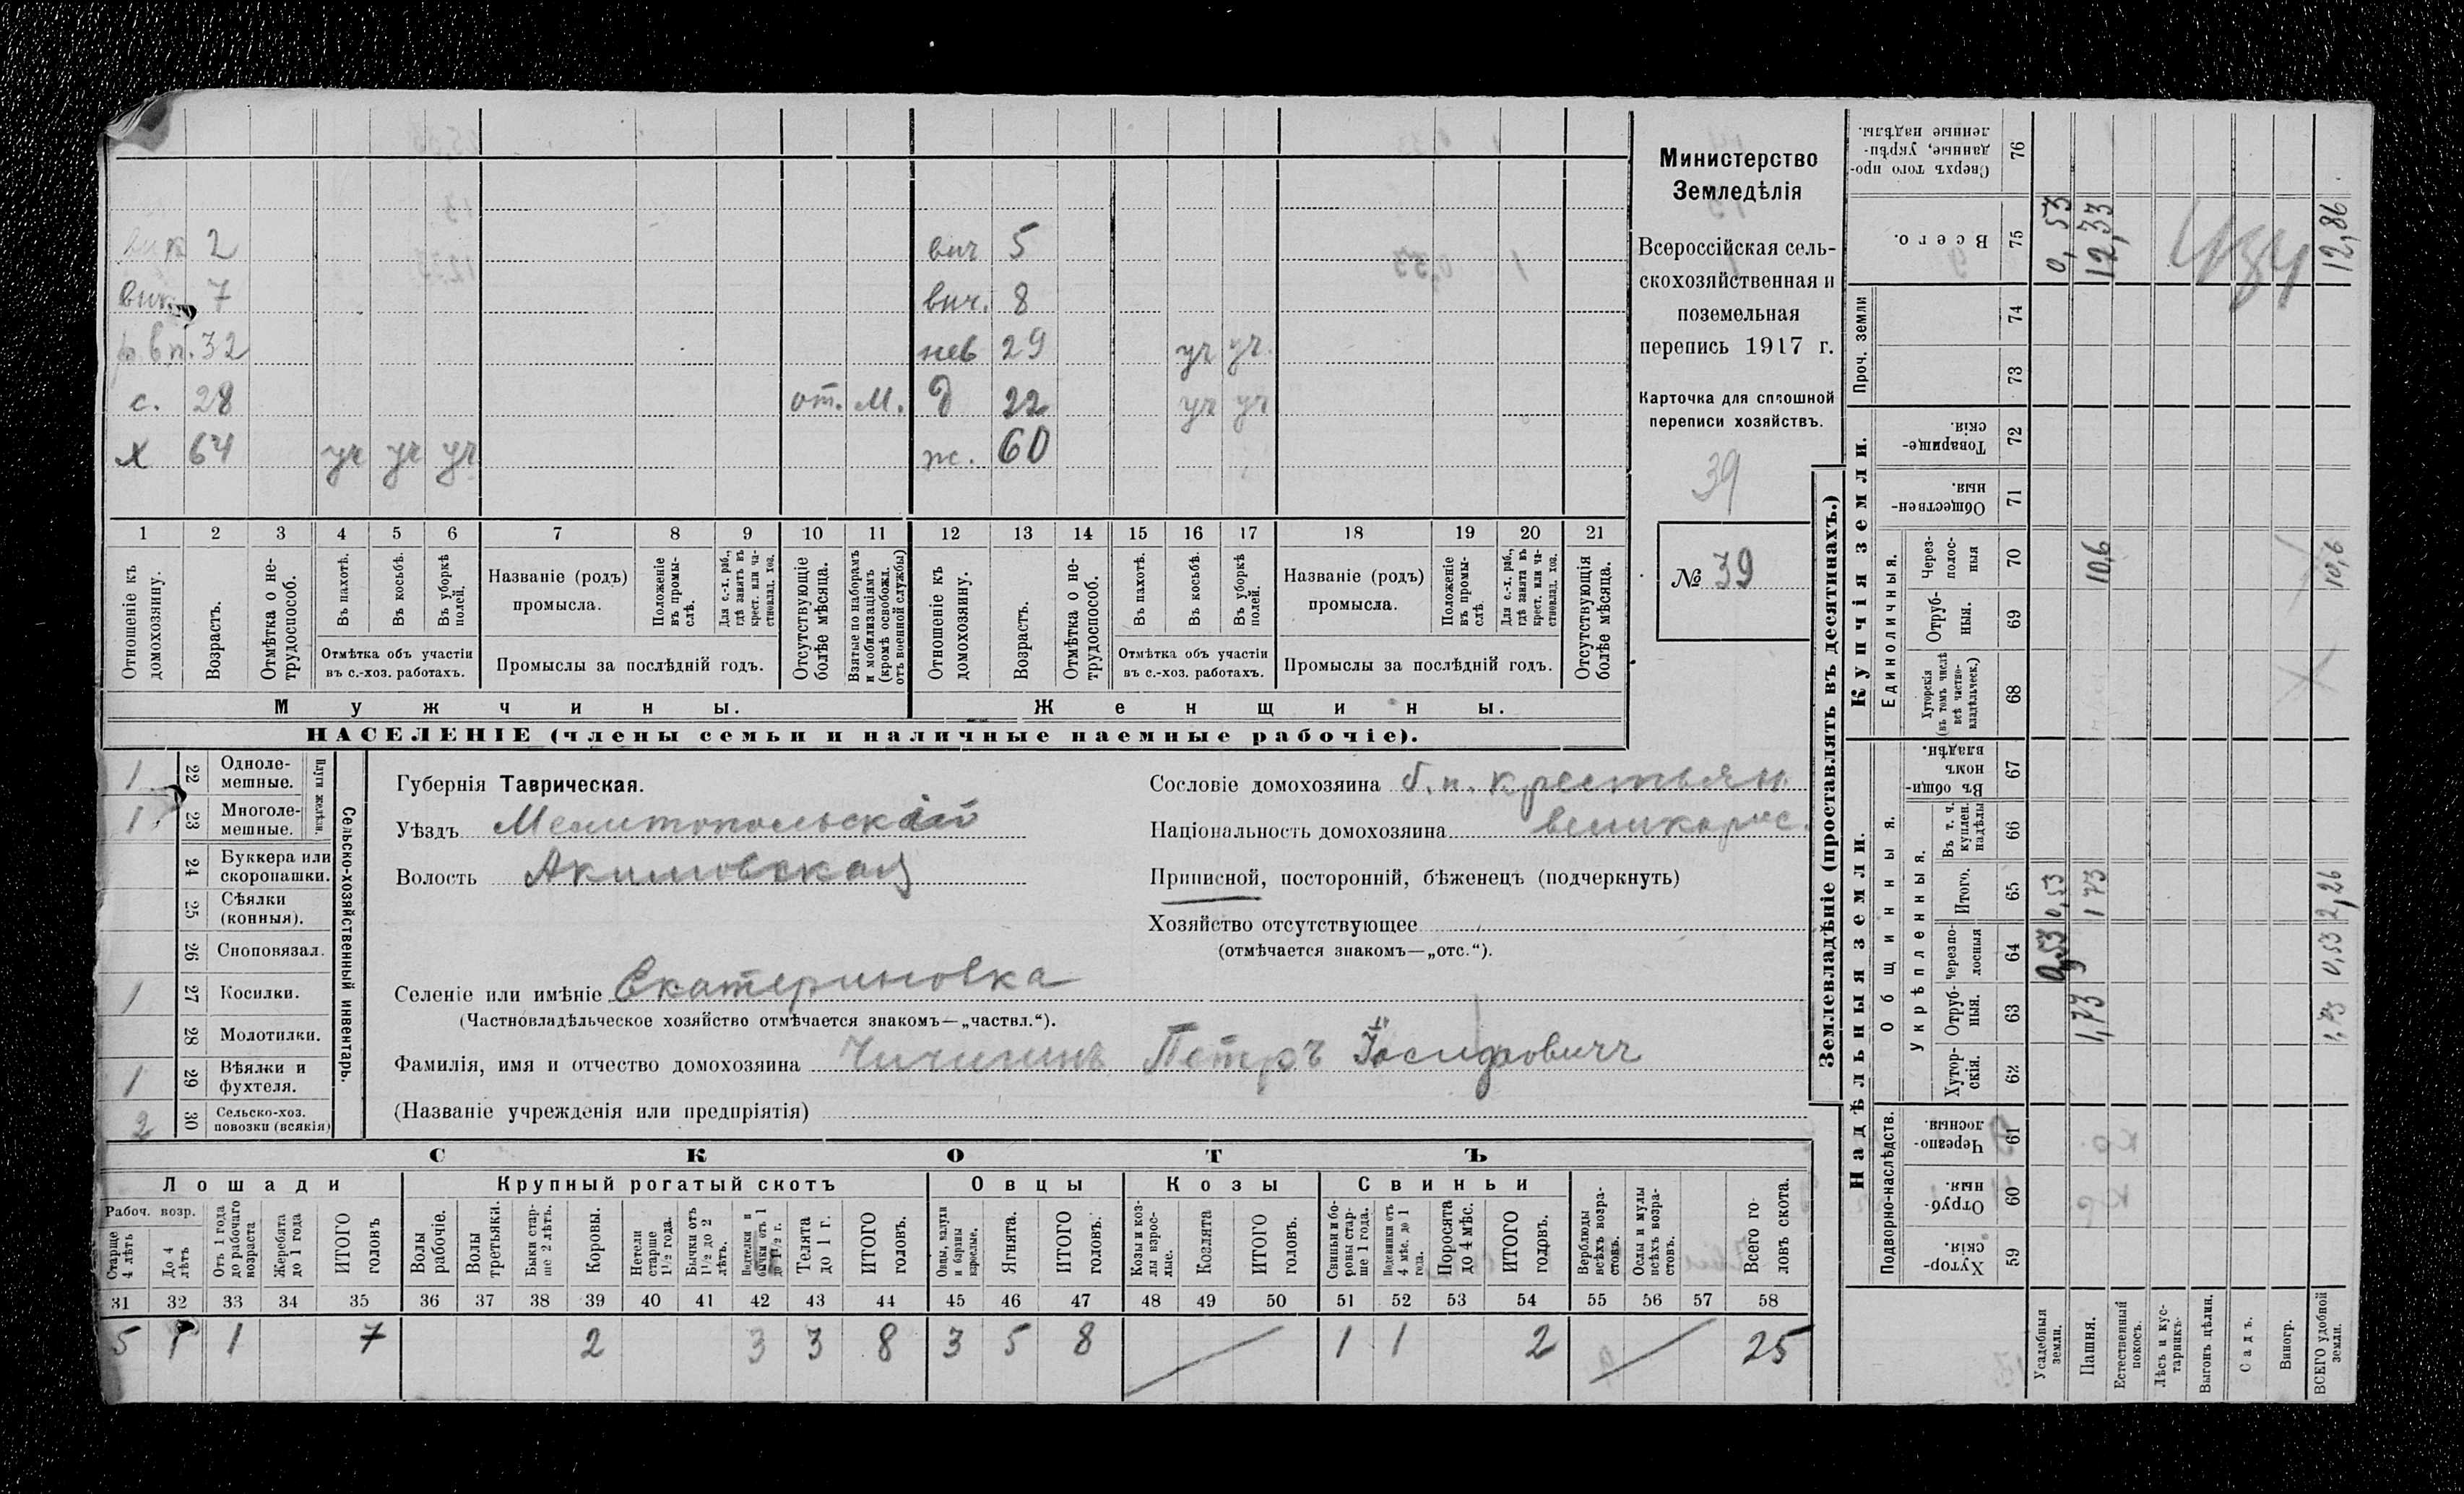 вик 2 внч 5
внк. 7 внч. 8
р.вп. 32 нев 29 уч уч.
с. 28 от. М. д 22 уч уч
х 64 уч уч уч ж. 60
1 2 3 4 5 6 7 8 9 10 11 12 13 14 15 16 17 18 19 20 21
Отношеніе къ домохозяину.
Возрастъ.
Отмѣтка о не-
трудоспособ.
Въ пахотѣ.
Въ косьбѣ.
Въ уборкѣ
полей.
Отмѣтка объ участіи
въ с.-хоз. работахъ.
Названіе (родъ)
промысла.
Положеніе
въ промы-
слѣ.
Для с.-х. раб.,
гдѣ занятъ въ
крест. или ча-
стновлад. хоз.
Промыслы за послѣдній годъ.
Отсутствующіе
болѣе мѣсяца.
Взятые по наборамъ
и мобилизаціямъ
(кромѣ освобожд.
отъ военной службы)
Отношеніе къ
домохозяину.
Возрастъ.
Отмѣтка о не-
трудоспособ.
Въ пахотѣ.
Въ косьбѣ.
Въ уборкѣ
полей.
Отмѣтка объ участіи
въ с.-хоз. работахъ.
Названіе (родъ)
промысла.
Положеніе
въ промы-
слѣ.
Для с.-х. раб.,
гдѣ занята въ
крест. или ча-
стновлад. хоз.
Промыслы за послѣдній годъ.
Отсутствующія
болѣе мѣсяца.
Мужчины. Женщины.
НАСЕЛЕНІЕ (члены семьи и наличные наемные рабочіе).
Министерство
Земледѣлія
Всероссійская сель-
скохозяйственная и
поземельная
перепись 1917 г.
Карточка для сплошной
переписи хозяйствъ.
39
№ 39
1 22 Одноле-
мешные.
1 23 Многоле-
мешные.
Плуги желѣзн.
24 Буккера или
скоропашки.
25 Сѣялки
(конныя).
26 Сноповязал.
1 27 Косилки.
28 Молотилки.
1 29 Вѣялки и
фухтеля.
2 30 Сельско-хоз.
повозки (всякія)
Сельско-хозяйственный инвентарь.
Губернія Таврическая.
Уѣздъ Мелитопольскій
Волость Акимовская
Сословіе домохозяина б. п. крестьян.
Національность домохозяина великорос.
Приписной, посторонній, бѣженецъ (подчеркнуть)
Хозяйство отсутствующее
(отмѣчается знакомъ—„отс.“).
Селеніе или имѣніе Екатериновка
(Частновладѣльческое хозяйство отмѣчается знакомъ—„частвл.“).
Фамилія, имя и отчество домохозяина Чичининъ Петръ Іосифовичъ
(Названіе учрежденія или предпріятія)
СКОТЪ
Лошади Крупный рогатый скотъ Овцы Козы Свиньи
Рабоч. возр.
Старше
4 лѣтъ
До 4
лѣтъ
Отъ 1 года
до рабочаго
возраста
Жеребята
до 1 года
ИТОГО
головъ
Волы
рабочіе.
Волы
третьяки.
Быки стар-
ше 2 лѣтъ.
Коровы.
Нетели
старше
1½ года.
Бычки отъ
1½ до 2
лѣтъ.
Подтелки и
бычки отъ 1
до 1½ г.
Телята
до 1 г.
ИТОГО
головъ.
Овцы, валухи
и бараны
взрослые.
Ягнята.
ИТОГО
головъ.
Козы и коз-
лы взрос-
лые.
Козлята
ИТОГО
головъ.
Свиньи и бо-
ровы стар-
ше 1 года.
Подсвинки отъ
4 мѣс. до 1
года.
Поросята
до 4 мѣс.
ИТОГО
головъ.
Верблюды
всѣхъ возра-
стовъ.
Ослы и мулы
всѣхъ возра-
стовъ.
Всего го-
ловъ скота.
31 32 33 34 35 36 37 38 39 40 41 42 43 44 45 46 47 48 49 50 51 52 53 54 55 56 57 58
5 1 1 7 2 3 3 8 3 5 8 1 1 2 25
Землевладѣніе (проставлять въ десятинахъ.)
Надѣльныя земли. Купчія земли. Проч. земли
Подворно-наслѣдств.
Общинныя.
Укрѣпленныя.
Единоличныя.
Хутор-
скія. 59
Отруб-
ныя. 60
Черезпо-
лосныя. 61
Хутор-
скія. 62
Отруб-
ныя. 63
Черезпо-
лосныя 64
Итого. 65
Въ т. ч.
куплен.
надѣлы 66
Въ общи-
номъ
владѣн. 67
Хуторскія
(въ томъ числѣ
всѣ частно-
владѣльческ.) 68
Отруб-
ныя. 69
Через-
полос-
ныя 70
Обществен-
ныя. 71
Товарище-
скія. 72
73
74
Всего. 75
Сверхъ того про-
данные, укрѣп-
ленные надѣлы. 76
Усадебныя
земли. 0,53 0,53 0,53
Пашня. 1,73 1 73 10,6 12,33
Естественный
покосъ.
Лѣсъ и кус-
тарникъ.
Выгонъ цѣлин.
Садъ.
Виногр.
ВСЕГО удобной
земли. 1,73 0,53 2,26 10,6 12,86